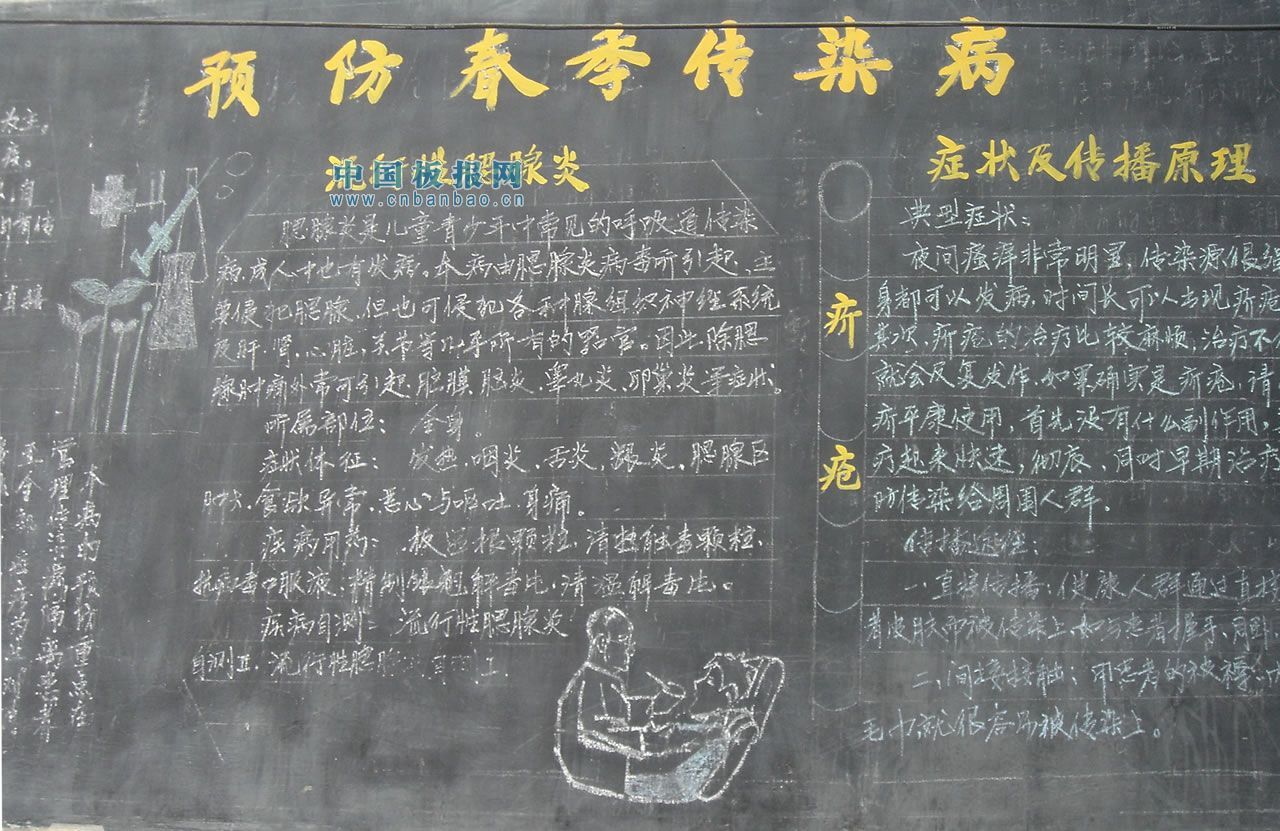 预防春季传染病
流行性腮腺炎
中国板报网
www.cnbanbao.cn
腮腺炎是儿童青少年中常见的呼吸道传染
病,成人中也有发病。本病由腮腺炎病毒所引起、主
要侵犯腮腺,但也可侵犯各种腺组织神经系统
及肝、肾、心脏,关节等几乎所有的器官。因此,除腮
腺肿痛外常可引起脑膜脑炎、睾丸炎、卵巢炎等症状。
所属部位: 全身。
症状体征: 发热、咽炎、舌炎、龈炎、腮腺区
肿大、食欲异常、恶心与呕吐、耳痛。
疾病用药: 板蓝根颗粒、清热解毒颗粒、
抗病毒口服液、精制银翘解毒片、清温解毒丸。
疾病自测: 流行性腮腺炎
自测Ⅱ、流行性腮腺
症状及传播原理
疥
疮
典型症状:
夜间瘙痒非常明显,传染源很强
身都可以发病,时间长可以出现疥疮
其次,疥疮的治疗比较麻烦,治疗不
就会反复发作,如果确实是疥疮,请
疥平康使用,首先没有什么副作用,
疗起来快速,彻底、同时早期治疗
防传染给周围人群。
传播途径:
一、直接传播:健康人群通过直接
着皮肤而被传染上,如与患者握手、同卧
二、间接接触:用患者的被褥
毛巾,就很容易被传染上。
本病的预防重点在
管理传染病隔离患者